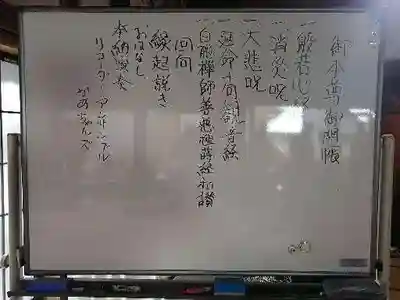 御本尊御開帳
一般若心経
一消災呪
一大悲呪
一延命十句観音経
一白隠禅師善悪種蒔鏡和讃
回向
縁起説き
おはなし
奉納演奏
リコーダーアンサンブル
かあちゃんズ